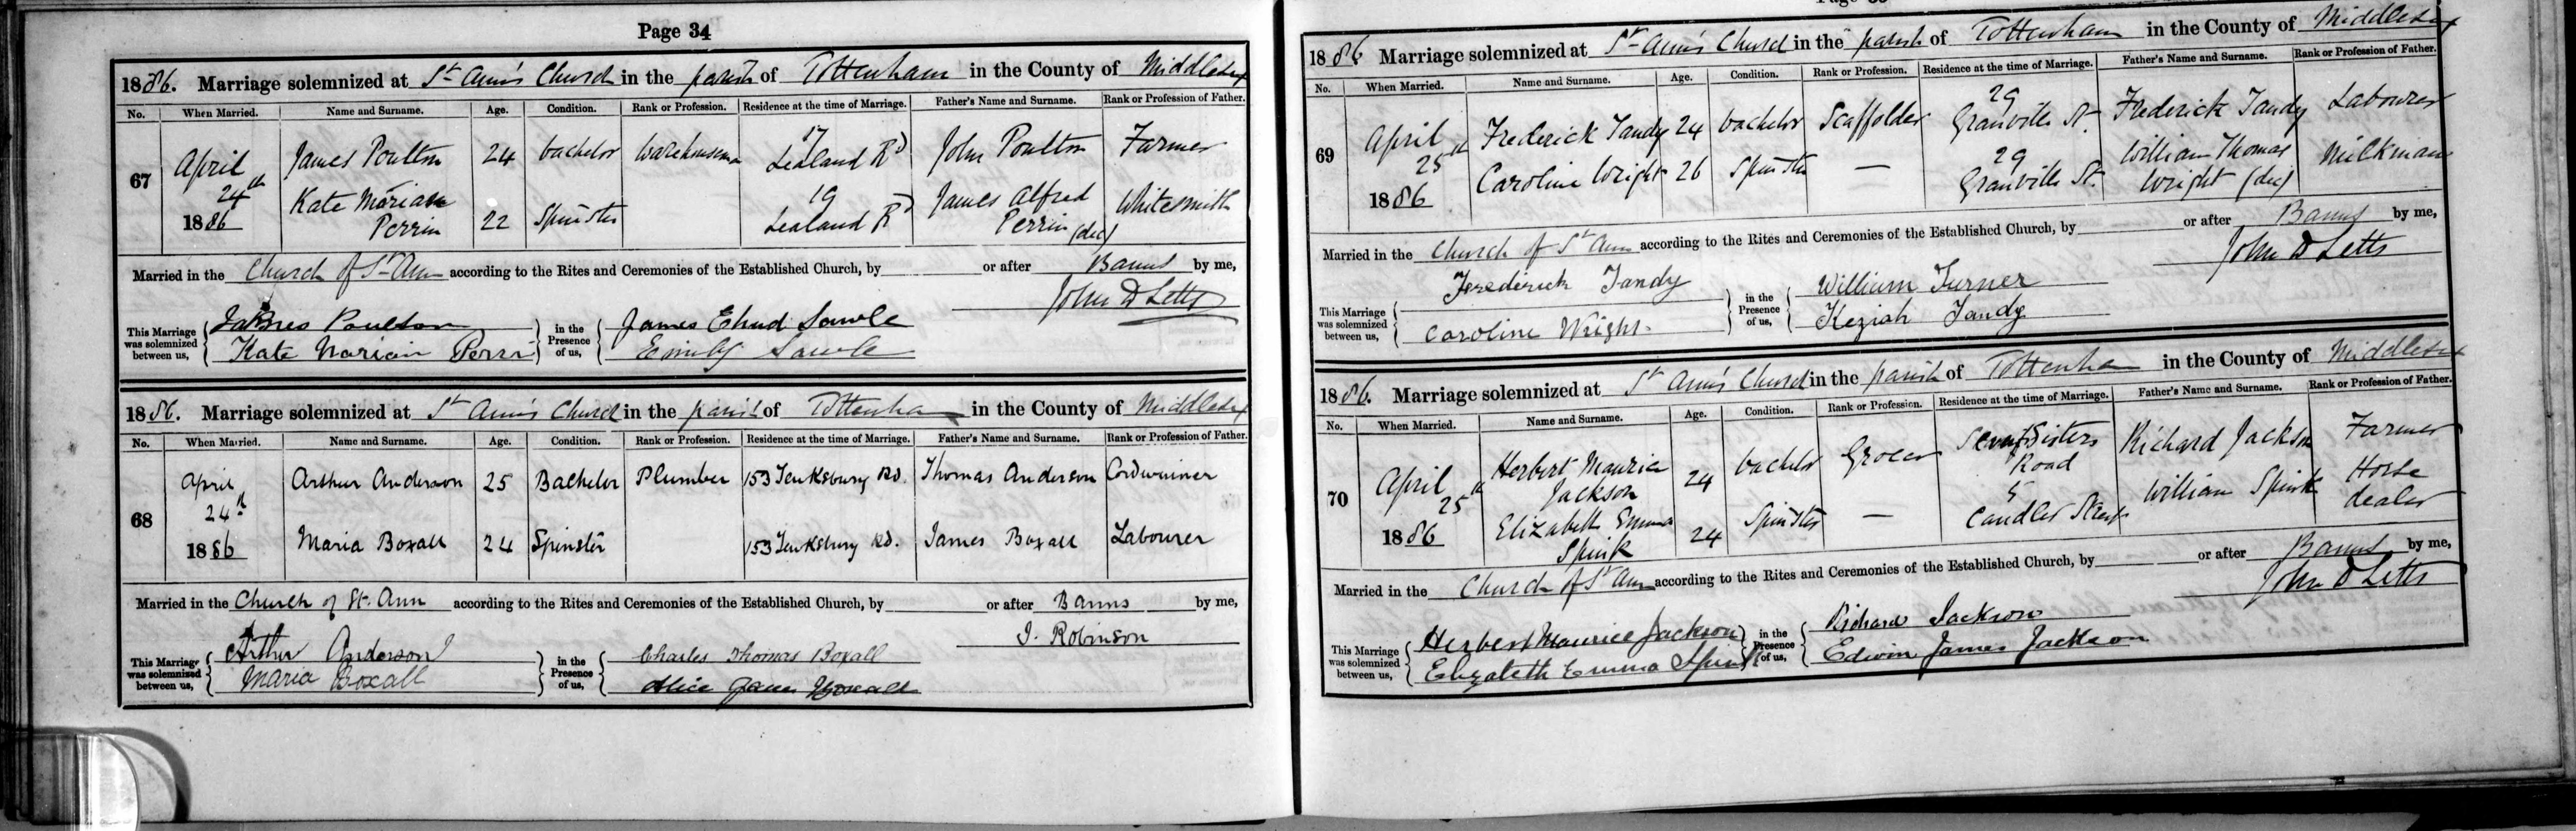 Page 34
1886. Marriage solemnized at St Ann's Church in the parish of Tottenham in the County of Middlesex
No. When Married. Name and Surname. Age. Condition. Rank or Profession. Residence at the time of Marriage. Father's Name and Surname. Rank or Profession of Father.
67 April 24th 1886 James Poulton 24 bachelor Warehouseman 17 Lealand Rd John Poulton Farmer
Kate Marian Perrin 22 Spinster 19 Lealand Rd James Alfred Perrin (dec) Whitesmith
Married in the Church of St Ann according to the Rites and Ceremonies of the Established Church, by or after Banns by me,
John D Letts
This Marriage was solemnized between us, James Poulton in the Presence of us, James Ehud Sawle
Kate Marian Perrin Emily Sawle
1886. Marriage solemnized at St Ann's Church in the parish of Tottenham in the County of Middlesex
No. When Married. Name and Surname. Age. Condition. Rank or Profession. Residence at the time of Marriage. Father's Name and Surname. Rank or Profession of Father.
68 April 24th 1886 Arthur Anderson 25 Bachelor Plumber 153 Tewksbury Rd. Thomas Anderson Cordwainer
Maria Boxall 24 Spinster 153 Tewksbury Rd. James Boxall Labourer
Married in the Church of St. Ann according to the Rites and Ceremonies of the Established Church, by or after Banns by me,
J. Robinson
This Marriage was solemnized between us, Arthur Anderson in the Presence of us, Charles Thomas Boxall
Maria Boxall Alice Boxall
1886 Marriage solemnized at St Ann's Church in the parish of Tottenham in the County of Middlesex
No. When Married. Name and Surname. Age. Condition. Rank or Profession. Residence at the time of Marriage. Father's Name and Surname. Rank or Profession of Father.
69 April 25th 1886 Frederick Tandy 24 bachelor Scaffolder 29 Granville St. Frederick Tandy Labourer
Caroline Wright 26 Spinster — 29 Granville St. William Thomas Wright (dec) Milkman
Married in the Church of St Ann according to the Rites and Ceremonies of the Established Church, by or after Banns by me,
John D Letts
This Marriage was solemnized between us, Frederick Tandy in the Presence of us, William Turner
Caroline Wright. Keziah Tandy
1886. Marriage solemnized at St Ann's Church in the parish of Tottenham in the County of Middlesex
No. When Married. Name and Surname. Age. Condition. Rank or Profession. Residence at the time of Marriage. Father's Name and Surname. Rank or Profession of Father.
70 April 25th 1886 Herbert Maurice Jackson 24 bachelor Grocer Seven Sisters Road Richard Jackson Farmer
Elizabeth Emma Spink 24 Spinster — 5 Candler Street William Spink Horse dealer
Married in the Church of St Ann according to the Rites and Ceremonies of the Established Church, by or after Banns by me,
John D Letts
This Marriage was solemnized between us, Herbert Maurice Jackson in the Presence of us, Richard Jackson
Elizabeth Emma Spink Edwin James Jackson